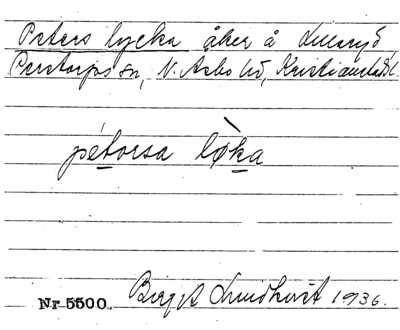 Peters lycka åker å Lilleryd
Perstorps sn, N. Åsbo hd, Kristianstads l.
pétorsa lø̀ka
Nr 5500. Birgit Lundkvist 1936.